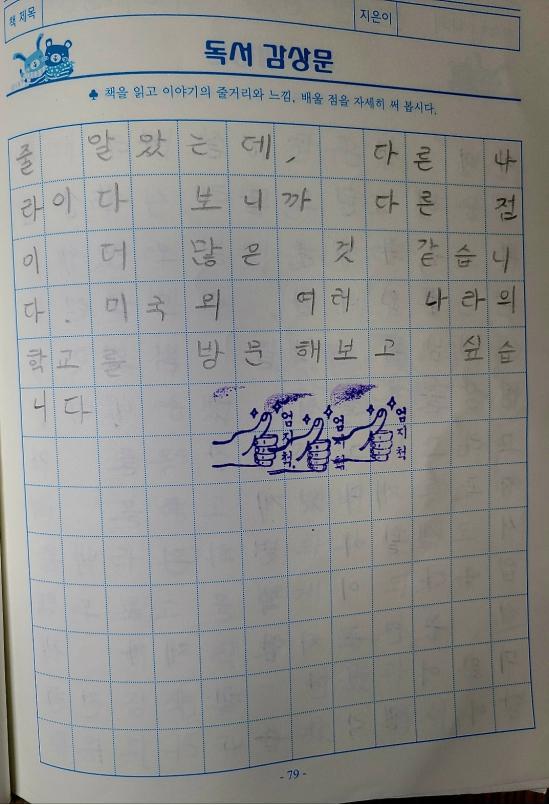 책 제목
지은이
독서 감상문
♣ 책을 읽고 이야기의 줄거리와 느낌, 배울 점을 자세히 써 봅시다.
줄 알았는데, 다른 나
라이다 보니까 다른 점
이 더 많은 것 같습니
다. 미국 외 여러 나라의
학교를 방문해보고 싶습
니다.
엄지척 엄지척 엄지척
- 79 -